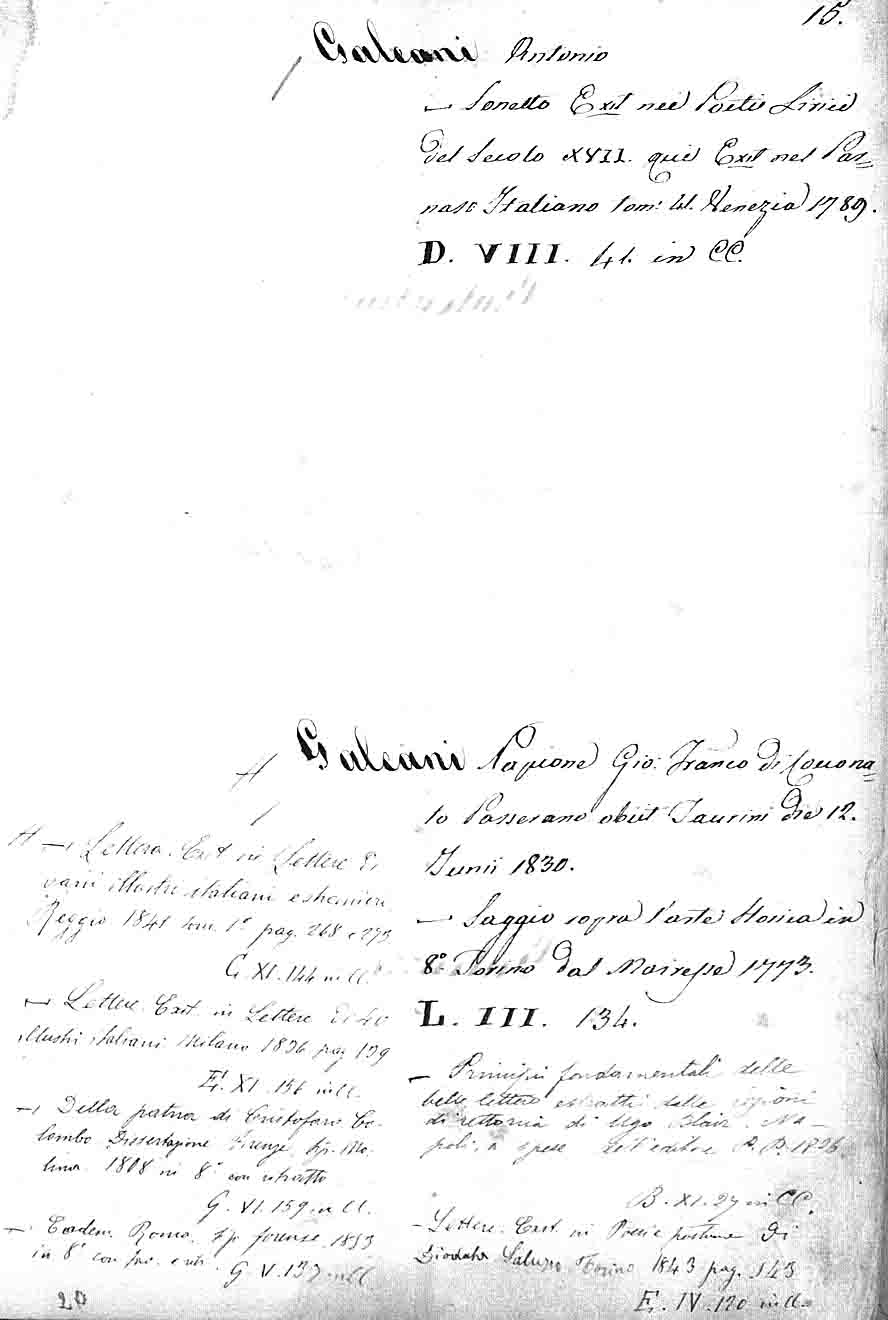 15.
Galeani Antonio
— Sonetto Exit nei Poeti Lirici
del Secolo XVII. qui Exit nel Par=
naso Italiano tom: 41. Venezia 1789.
D. VIII. 41. in CC.
Galeani Napione Gio: Franco di Cocona=
to Passerano obiit Taurini die 12.
Junii 1830.
— Saggio sopra l'arte Storica in
8° Torino dal Mairesse 1773.
L. III. 134.
— Principii fondamentali delle
belle lettere estratti dalle lezioni
di rettorica di Ugo Blair. Na-
poli, a spese dell'editore R. B. 1826
B. XI. 27 in CC.
— Lettere. Exit. in Poesie postume di
Diodata Saluzzo Torino 1843 pag. 543
E. IV. 120 in CC.
H — Lettera. Exit in Lettere di
varii illustri italiani e stranieri
Reggio 1841 tom. 1° pag. 268 e 273
G. XI. 144 in CC.
— Lettere. Exit. in Lettere di 40
illustri italiani Milano 1836 pag 139
E. XI. 156 in CC.
— Della patria di Cristoforo Co-
lombo Dissertazione Firenze,
1808 in 8° con ritratto
G. VI. 159 in CC.
— Eadem. Roma. tip forense 1853
in 8° con
G. V. 137 in CC.
20